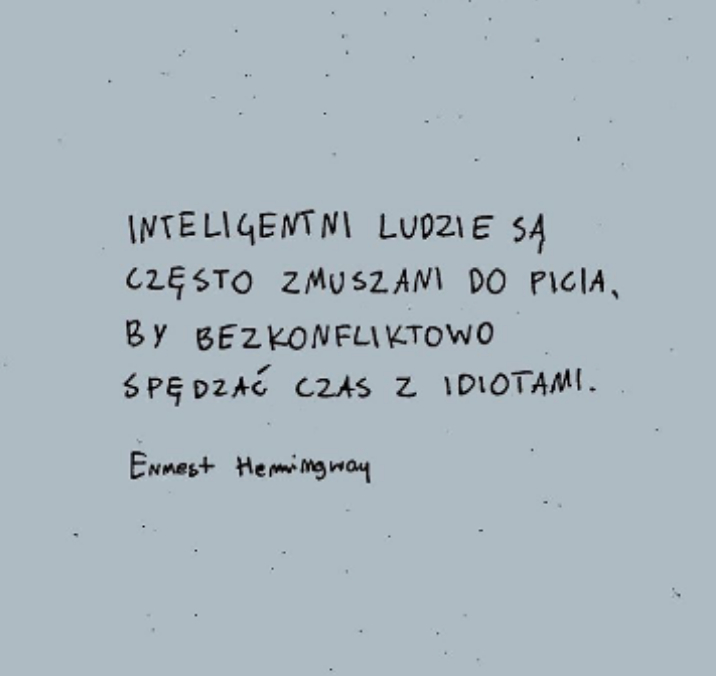 INTELIGENTNI LUDZIE SĄ
CZĘSTO ZMUSZANI DO PICIA,
BY BEZKONFLIKTOWO
SPĘDZAĆ CZAS Z IDIOTAMI.
Ernest Hemingway